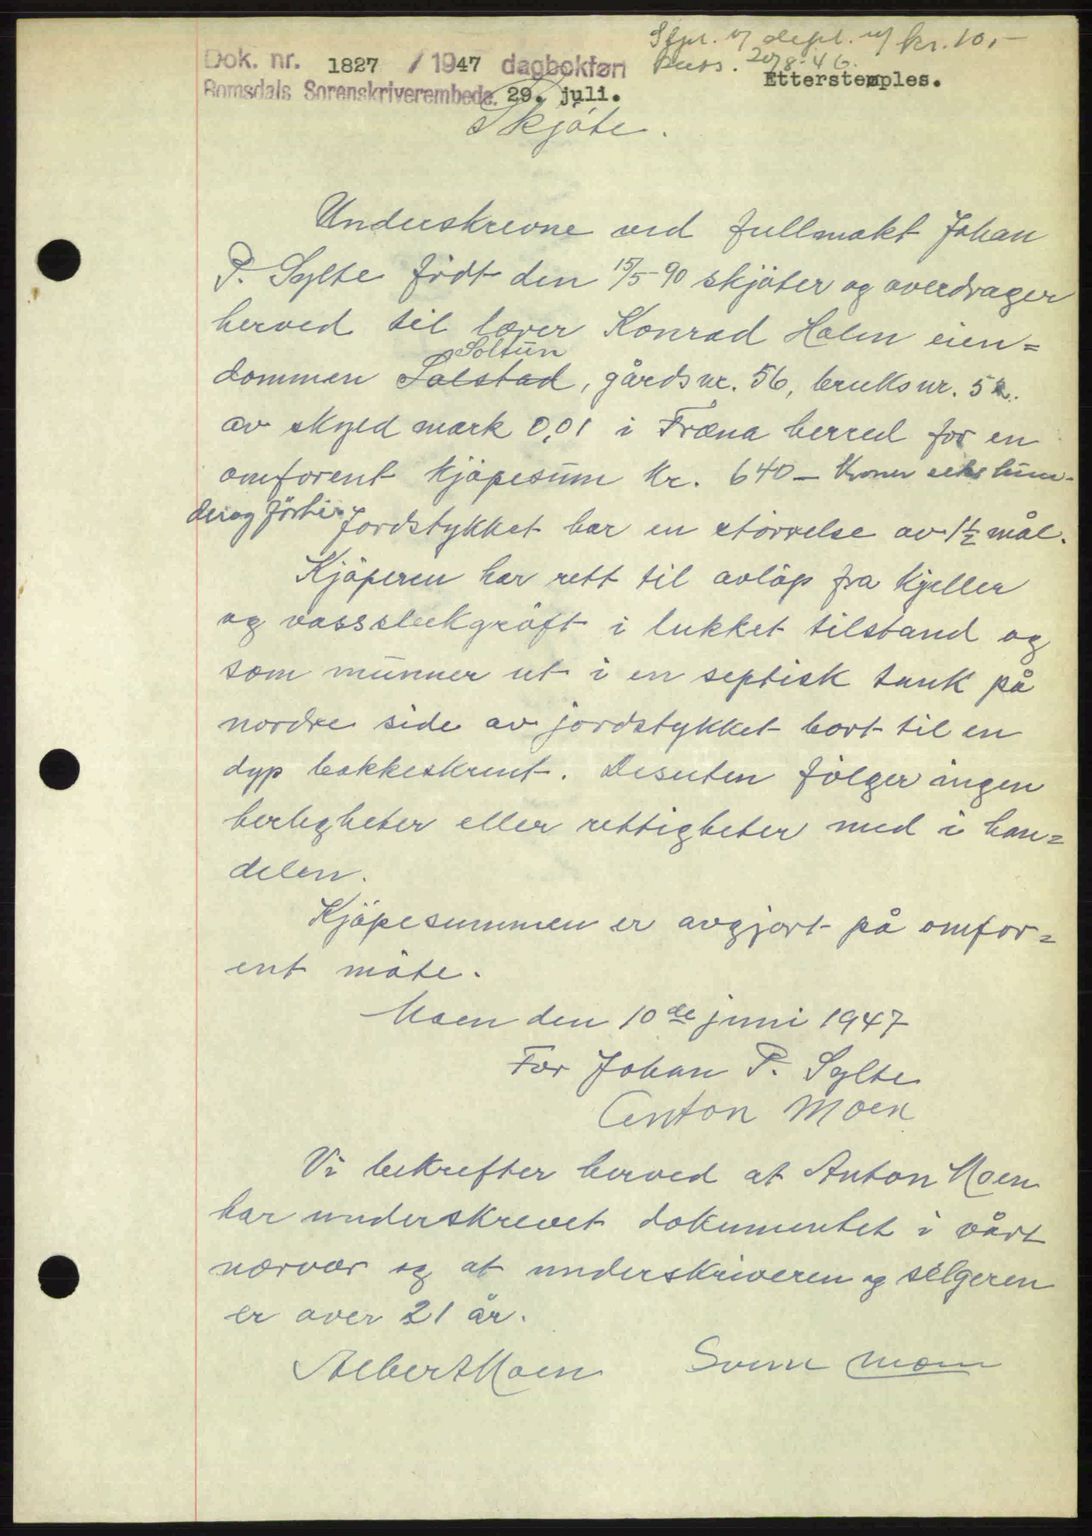 Dok. nr. 1827 / 1947 dagbokført
Romsdals Sorenskriverembede. 29. juli.
kr. 10,-
20/8-46.
Etterstemples.
Skjøte.
Underskrevne ved fullmakt Johan
P. Sylte født den 15/5-90 skjøter og overdrager
herved til lærer Konrad Holm eien=
Soltun
dommen Solstad, gårdsnr. 56, bruksnr. 52.
av skyld mark 0,01 i Fræna herred for en
omforent kjøpesum kr. 640 - Kroner seks hun-
der og førti. Jordstykket har en størrelse av 1½ mål.
Kjøperen har rett til avløp fra kjeller
og vassslukgrøft i lukket tilstand og
som munner ut i en septisk tank på
nordre side av jordstykket bort til en
dyp bakkeskrent. Desuten følger ingen
herligheter eller rettigheter med i han=
delen.
Kjøpesummen er avgjort på omfor=
ent måte.
Moen den 10de juni 1947
For Johan P. Sylte
Anton Moen
Vi bekrefter herved at Anton Moen
har underskrevet dokumentet i vårt
nærvær og at underskriveren og selgeren
er over 21 år.
Albert Moen Svein Moen